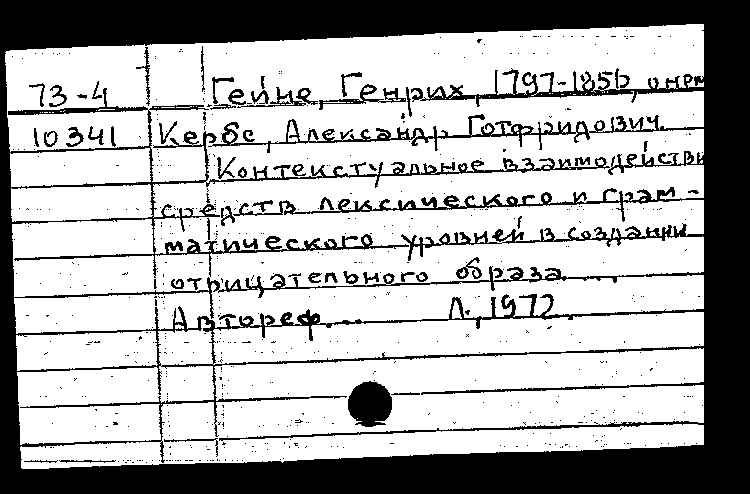 73-4 Гейне, Генрих, 1797-1856, о нем
10341 Кербс, Александр Готфридович.
Контекстуальное взаимодействи
средств лексического и грам-
матического уровней в создании
отрицательного образа....
Автореф.... Л., 1972.